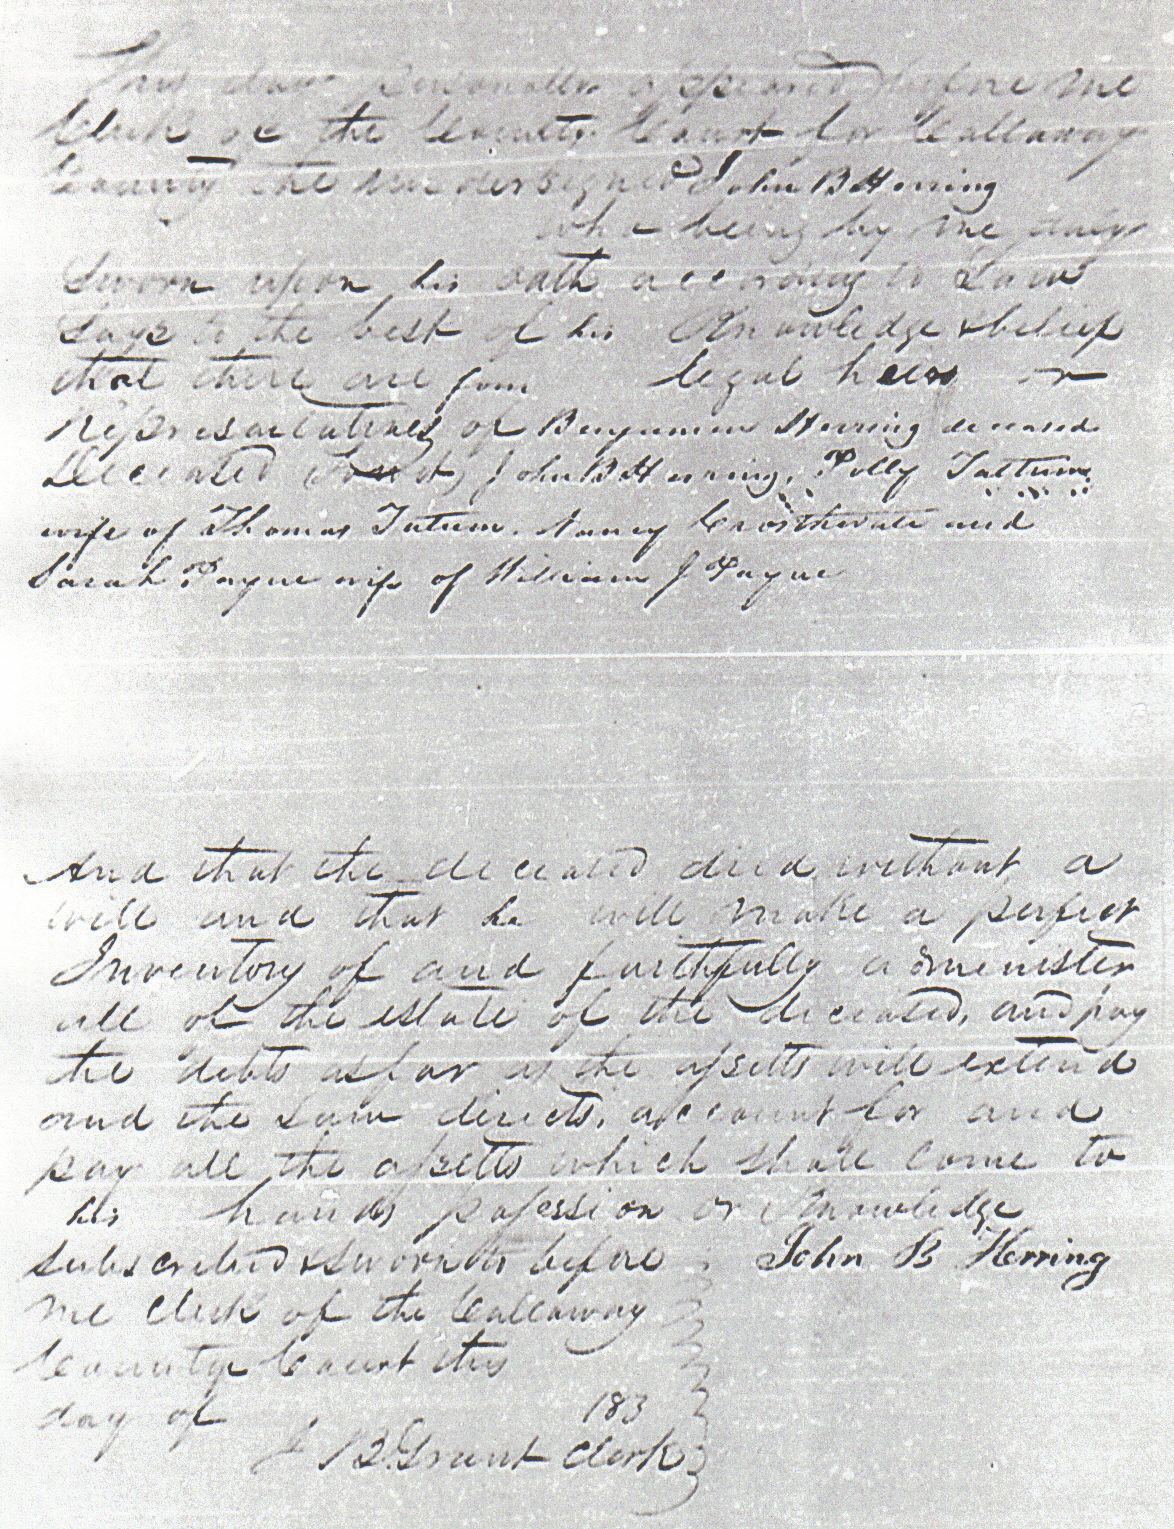 This day personally appeared before me
Clerk of the County Court for Callaway
County the undersigned John B Herring
who being by me duly
Sworn upon his oath according to Law
Says to the best of his Knowledge & belief
that there are four legal heirs or
Representatives of Benjamin Herring deceased
Deceased John B Herring, Polly Tattum
wife of Thomas Tatum. Nancy Crosthwate and
Sarah Payne wife of William J Payne
And that the deceased died without a
will and that he will make a perfect
Inventory of and faithfully administer
all of the estate of the deceased, and pay
the debts as far as the assetts will extend
and the Law directs, account for and
pay all the assetts which shall come to
his hands possession or Knowledge
subscribed & sworn to before John B Herring
me Clerk of the Callaway
County Court this
day of 183
J B. Grant Clerk